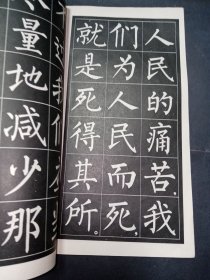 人民的痛苦，我
们为人民而死，
就是死得其所。
我们
量地减少那